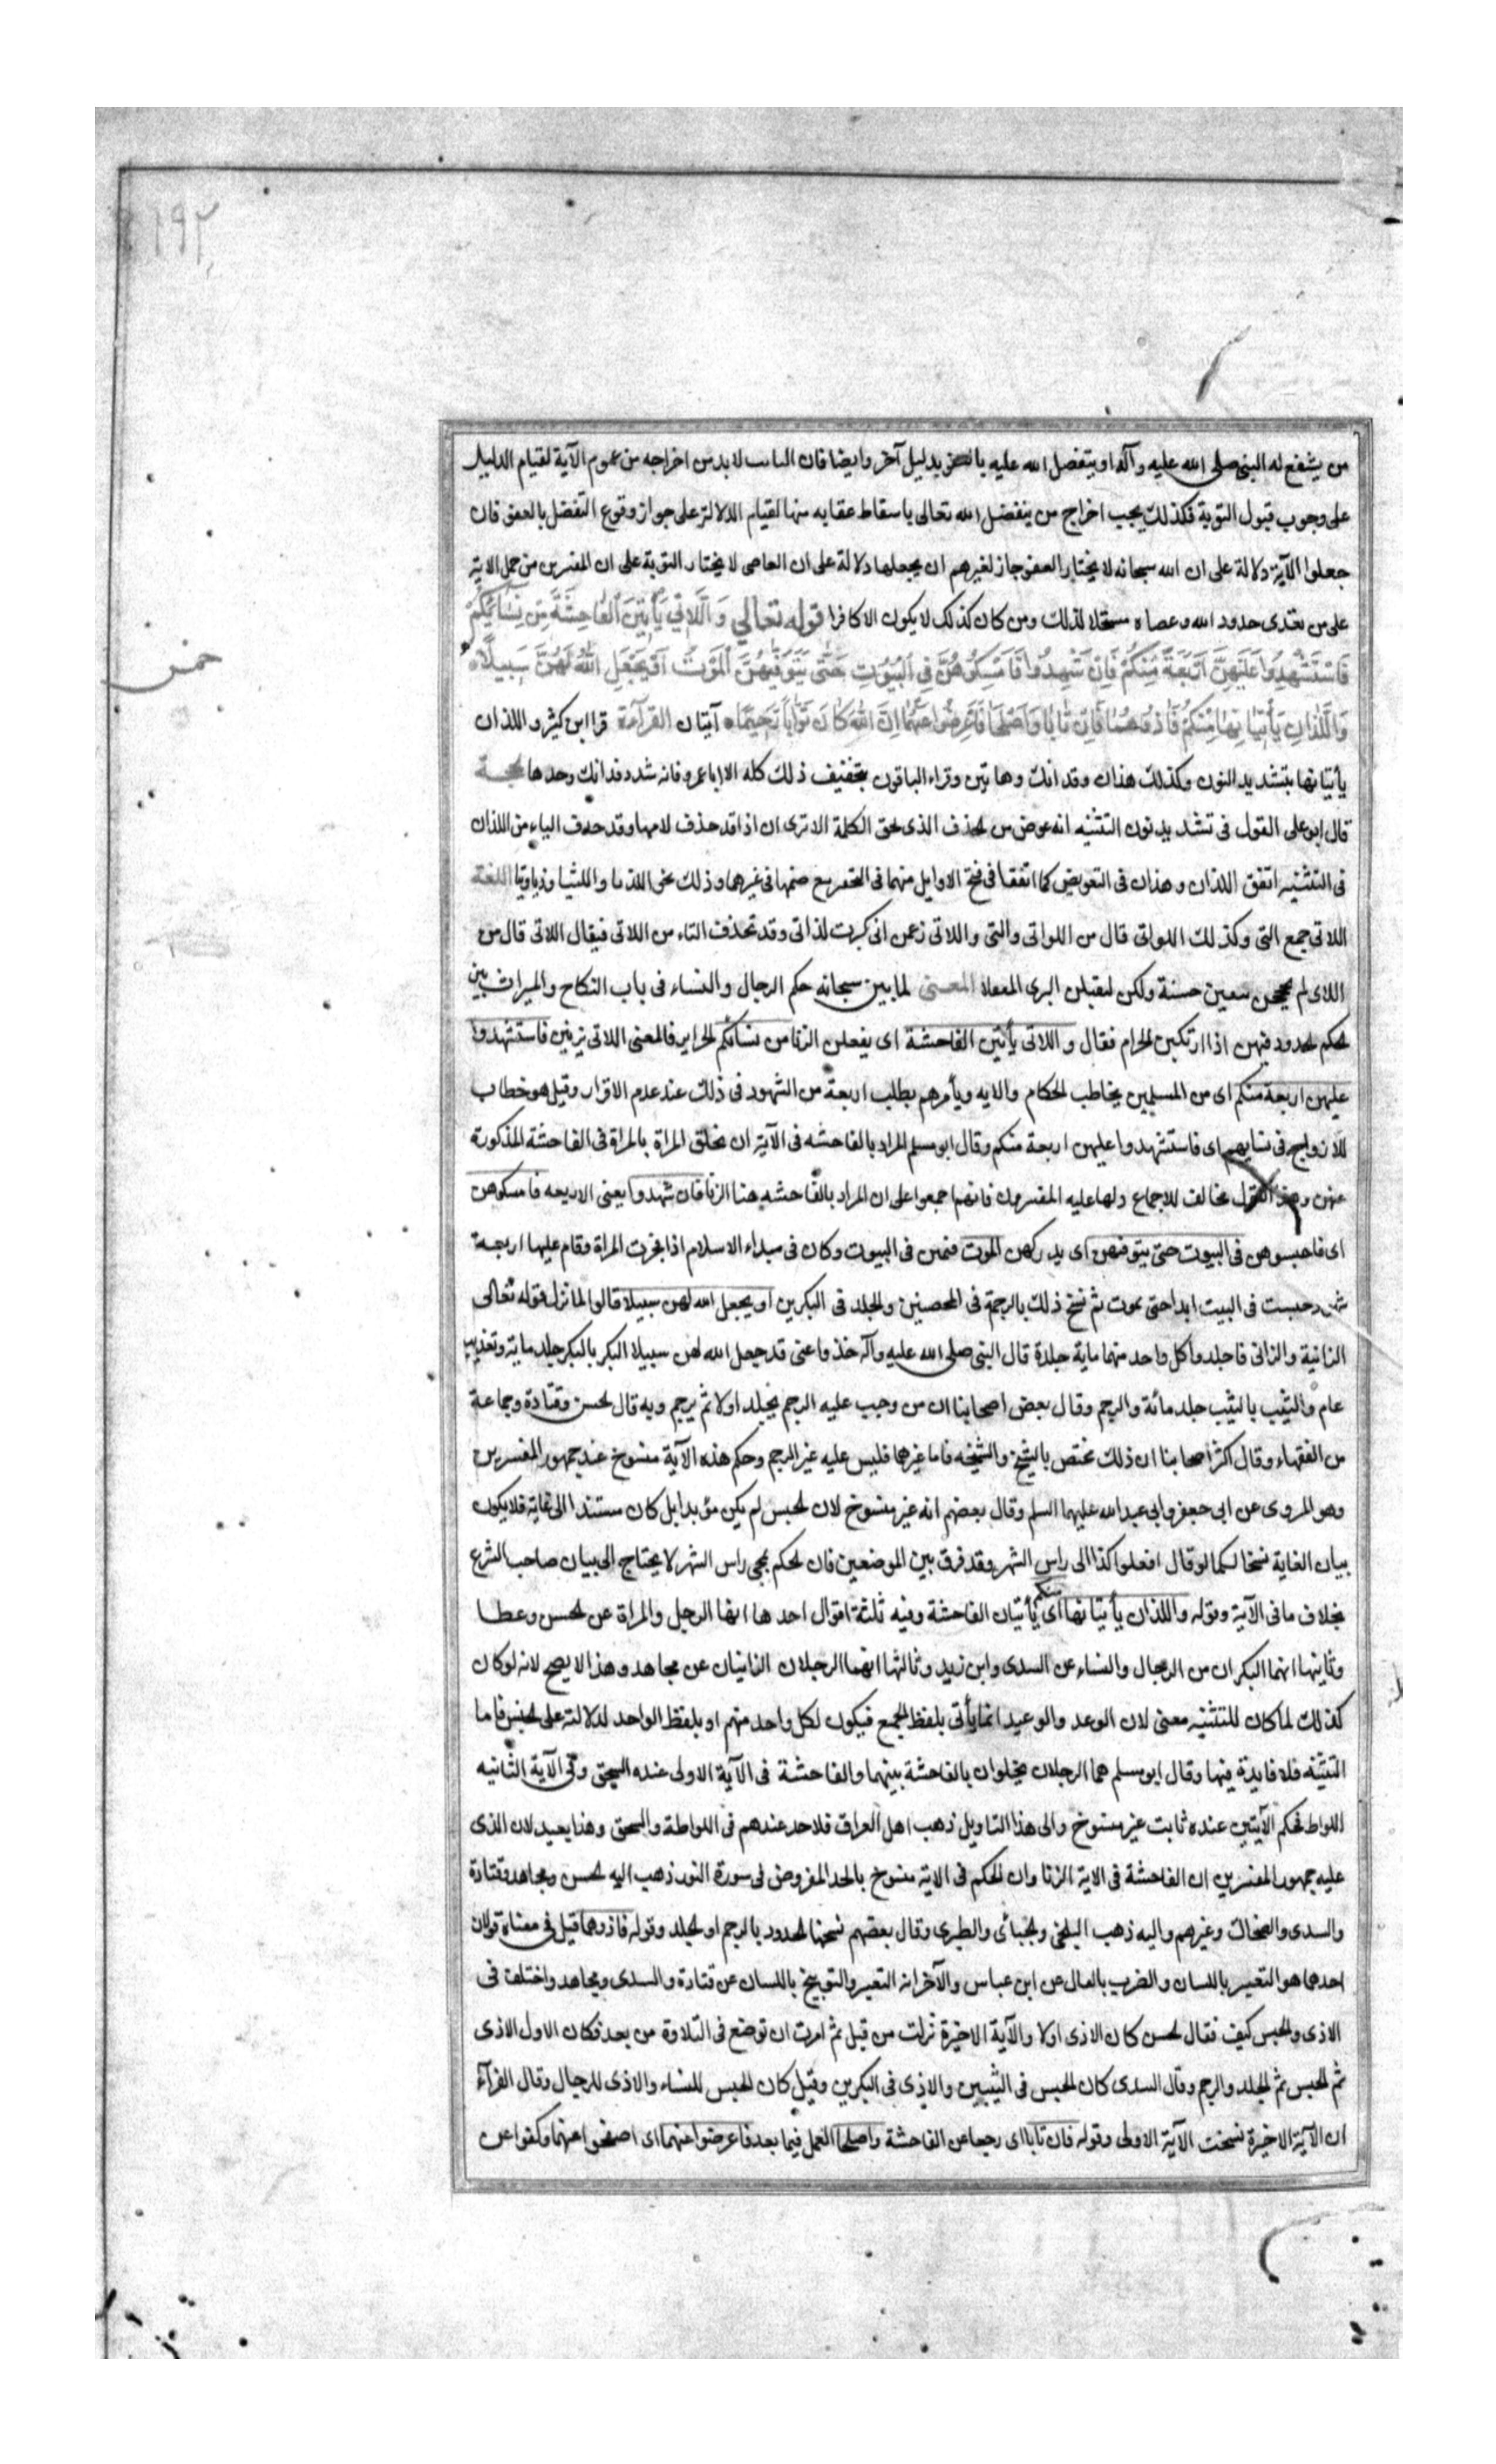 ١٩٢
من يشفع له النبى صلى الله عليه وآله او يتفضل الله عليه بالعفو بدليل آخر وايضا فان التائب لا بد من اخراجه من عموم الآية لقيام الدليل
على وجوب قبول التوبة فكذلك يجب اخراج من يتفضل الله تعالى باسقاط عقابه منها لقيام الدلالة على جواز وقوع التفضل بالعفو فان
جعلوا الآية دلالة على ان الله سبحانه لا يختار العفو جاز لغيرهم ان يجعلها دلالة على ان العاصى لا يختار التوبة على ان المفسرين من حمل الاية
على من تعدى حدود الله وعصاه مستحلا لذلك ومن كان كذلك لا يكون الا كافرا قوله تعالى وَاللَّاتِي يَأْتِينَ الْفَاحِشَةَ مِنْ نِسَائِكُمْ
فَاسْتَشْهِدُوا عَلَيْهِنَّ أَرْبَعَةً مِنْكُمْ فَإِنْ شَهِدُوا فَأَمْسِكُوهُنَّ فِي الْبُيُوتِ حَتَّى يَتَوَفَّيهُنَّ الْمَوْتُ أَوْ يَجْعَلَ اللهُ لَهُنَّ سَبِيلًا
وَاللَّذَانِ يَأْتِيَانِهَا مِنْكُمْ فَآذُوهُمَا فَإِنْ تَابَا وَأَصْلَحَا فَأَعْرِضُوا عَنْهُمَا إِنَّ اللهَ كَانَ تَوَّابًا رَحِيمًا آيتان القرآءة قرا ابن كثير واللذان
يأتيانها بتشديد النون وكذلك هذان وفذانك وهاتين وقراء الباقون بتخفيف ذلك كله الا ابا عمرو فانه شدد فذانك وحدها الحجة
قال ابو على القول فى تشديد نون التثنيه انه عوض من الحذف الذى لحق الكلمة الا ترى ان اذا قد حذف لامها وقد حذف الياء من اللذان
فى التثنيه اتفق اللذان وهذان فى التعويض كما اتفقا فى فتح الاوايل منهما فى التحقير مع ضمها فى غيرهما وذلك نحو اللذيا واللتيا وذياوتيا اللغة
اللاتى جمع التى وكذلك اللواتى قال من اللواتى والتى واللاتى زعمن انى كبرت لداتى وقد تحذف التاء من اللاتى فيقال اللائى قال من
اللاى لم يحججن يبغين حسبة ولكن ليقتلن البرى المغفلا المعنى لما بين سبحانه حكم الرجال والنساء فى باب النكاح والميراث بين
الحكم الحدود فيهن اذا ارتكبن الحرام فقال واللاتى يأتين الفاحشة اى يفعلن الزنا من نسائكم الحراير فالمعنى اللاتى يزنين فاستشهدوا
عليهن اربعة منكم اى من المسلمين يخاطب الحكام والايه ويأمرهم بطلب اربعة من الشهود فى ذلك عند عدم الاقرار وقيل هو خطاب
للازواج فى نسايهم اى فاستشهدوا عليهن اربعة منكم وقال ابو مسلم المراد بالفاحشه فى الآية ان تخلق المراة بالمراة فى الفاحشة المذكورة
عنهن وهذا القول مخالف للاجماع ولما عليه المفسرون فانهم اجمعوا على ان المراد بالفاحشه هنا الزنا فان شهدوا يعنى الاربعه فامسكوهن
اى فاحبسوهن فى البيوت حتى يتوفهن اى يدركهن الموت فيمتن فى البيوت وكان فى مبداء الاسلام اذا فجرت المراة وقام عليها اربعة
شهود حبست فى البيت ابدا حتى تموت ثم نسخ ذلك بالرجمة فى المحصنين والجلد فى البكرين او يجعل الله لهن سبيلا قالوا لما نزل قوله تعالى
الزانية والزانى فاجلدوا كل واحد منهما ماية جلدة قال النبى صلى الله عليه وآله خذوا عنى قد جعل الله لهن سبيلا البكر بالبكر جلد ماية وتغريب
عام والثيب بالثيب جلد مائة والرجم وقال بعض اصحابنا ان من وجب عليه الرجم يجلد اولا ثم يرجم وبه قال الحسن وقتادة وجماعة
من الفقهاء وقال اكثر اصحابنا ان ذلك مختص بالشيخ والشيخه فاما غيرهما فليس عليه غير الرجم وحكم هذه الآية منسوخ عند جمهور المفسرين
وهو المروى عن ابى جعفر وابى عبد الله عليهما السلم وقال بعضهم انه غير منسوخ لان الحبس لم يكن مؤبدا بل كان مستندا الى غاية فلا يكون
بيان الغاية نسخا له كما لو قال افعلوا كذا الى راس الشهر وقد فرق بين الموضعين فان الحكم بمجى راس الشهر لا يحتاج الى بيان صاحب الشرع
بخلاف ما فى الآية وقوله واللذان يأتيانها منكم اى يأتيان الفاحشة وفيه ثلثة اقوال احدها انها الرجل والمراة عن الحسن وعطا
وثانيها انهما البكران من الرجال والنساء عن السدى وابن زيد وثالثها انهما الرجلان الزانيان عن مجاهد وهذا لا يصح لانه لو كان
كذلك لما كان للتثنيه معنى لان الوعد والوعيد انما يأتى بلفظ الجمع فيكون لكل واحد منهم او بلفظ الواحد لدلالته على الجنس فاما
التثنيه فلا فايدة فيها وقال ابو مسلم هما الرجلان يخلوان بالفاحشة بينهما والفاحشة فى الآية الاولى عنده السحق وفى الآية الثانيه
اللواط فحكم الآيتين عنده ثابت غير منسوخ والى هذا التاويل ذهب اهل العراق فلا حد عندهم فى اللواطة والسحق وهذا بعيد لان الذى
عليه جمهور المفسرين ان الفاحشة فى الاية الزنا وان الحكم فى الاية منسوخ بالحد المفروض فى سورة النور ذهب اليه الحسن ومجاهد وقتادة
والسدى والضحاك وغيرهم واليه ذهب البلخى والجبائى والطبرى وقال بعضهم نسخها الحدود بالرجم او الجلد وقوله فاذوهما قيل فى معناه قولان
احدهما هو التعيير باللسان والضرب بالنعال عن ابن عباس والآخر انه التعيير والتوبيخ باللسان عن قتادة والسدى ومجاهد واختلف فى
الاذى والحبس كيف فقال الحسن كان الاذى اولا والآية الاخيرة نزلت من قبل ثم امرت ان توضع فى التلاوة من بعد فكان الاول الاذى
ثم الحبس ثم الجلد والرجم وقال السدى كان الحبس فى الثيبين والاذى فى البكرين وقيل كان الحبس للنساء والاذى للرجال وقال الفرآء
ان الآية الاخيرة نسخت الآية الاولى وقوله فان تابا اى رجعا عن الفاحشة واصلحا العمل فيما بعد فاعرضوا عنهما اى اصفحوا عنهما وكفوا عن